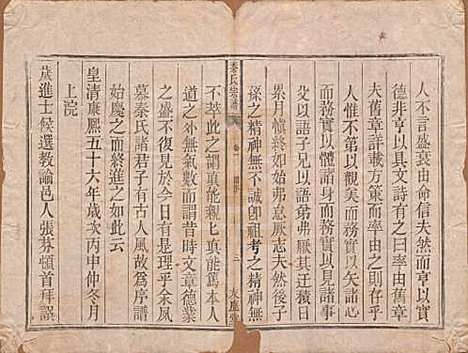 人不言盛衰由命信夫然而亨以實
德非亨以具文詩有之曰率由舊章
夫舊章詳載方策而率由之則存乎
人惟不務實以觀美而務實以心
而務實以體諸身而務實以
父以語子兄以語弟弗厭其迂獵
累月愼終如始弗怠厥志夫然後子
孫之精神無不誠卽祖考之精神無
秦氏宗譜
卷一
三
不萃此之謂眞能親親眞能篤本人
道之外無氣數而謂昔時文章德業
之盛不復見於今日有是理乎余夙
慕秦氏諸君子有古人風故爲序譜
始慶之而終進之也如此云
皇清康熙五十六年歲次丙申仲冬月
上浣
歲進士候選敎諭邑人張芬頓首拜譔